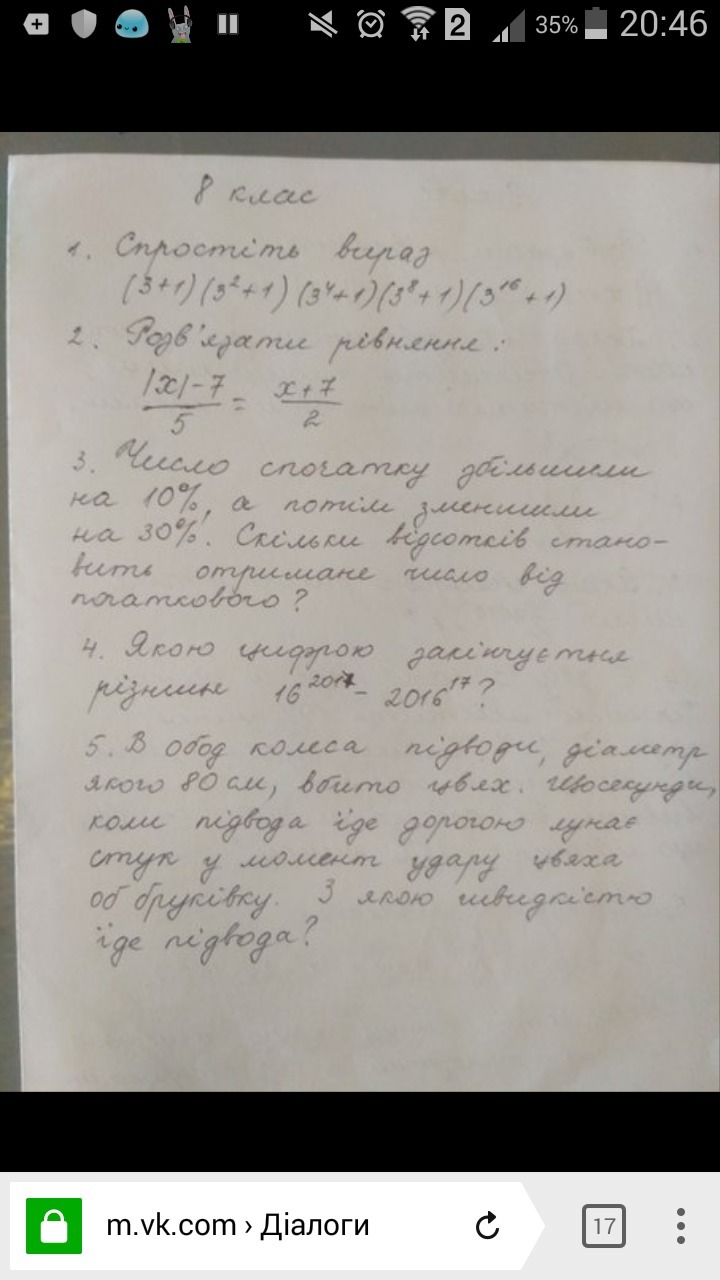 2 35% 20:46
8 клас
1. Спростіть вираз
(3+1)(3²+1)(3⁴+1)(3⁸+1)(3¹⁶+1)
2. Розв'язати рівняння:
|x|-7 / 5 = x+7 / 2
3. Число спочатку збільшили
на 10%, а потім зменшили
на 30%. Скільки відсотків стано-
вить отримане число від
початкового?
4. Якою цифрою закінчується
різниця 16²⁰¹⁷ - 2016¹⁷?
5. В обод колеса підводи, діаметр
якого 80 см, вбито цвях. Щосекунди,
коли підвода їде дорогою лунає
стук у момент удару цвяха
об бруківку. З якою швидкістю
їде підвода?
m.vk.com › Діалоги 17